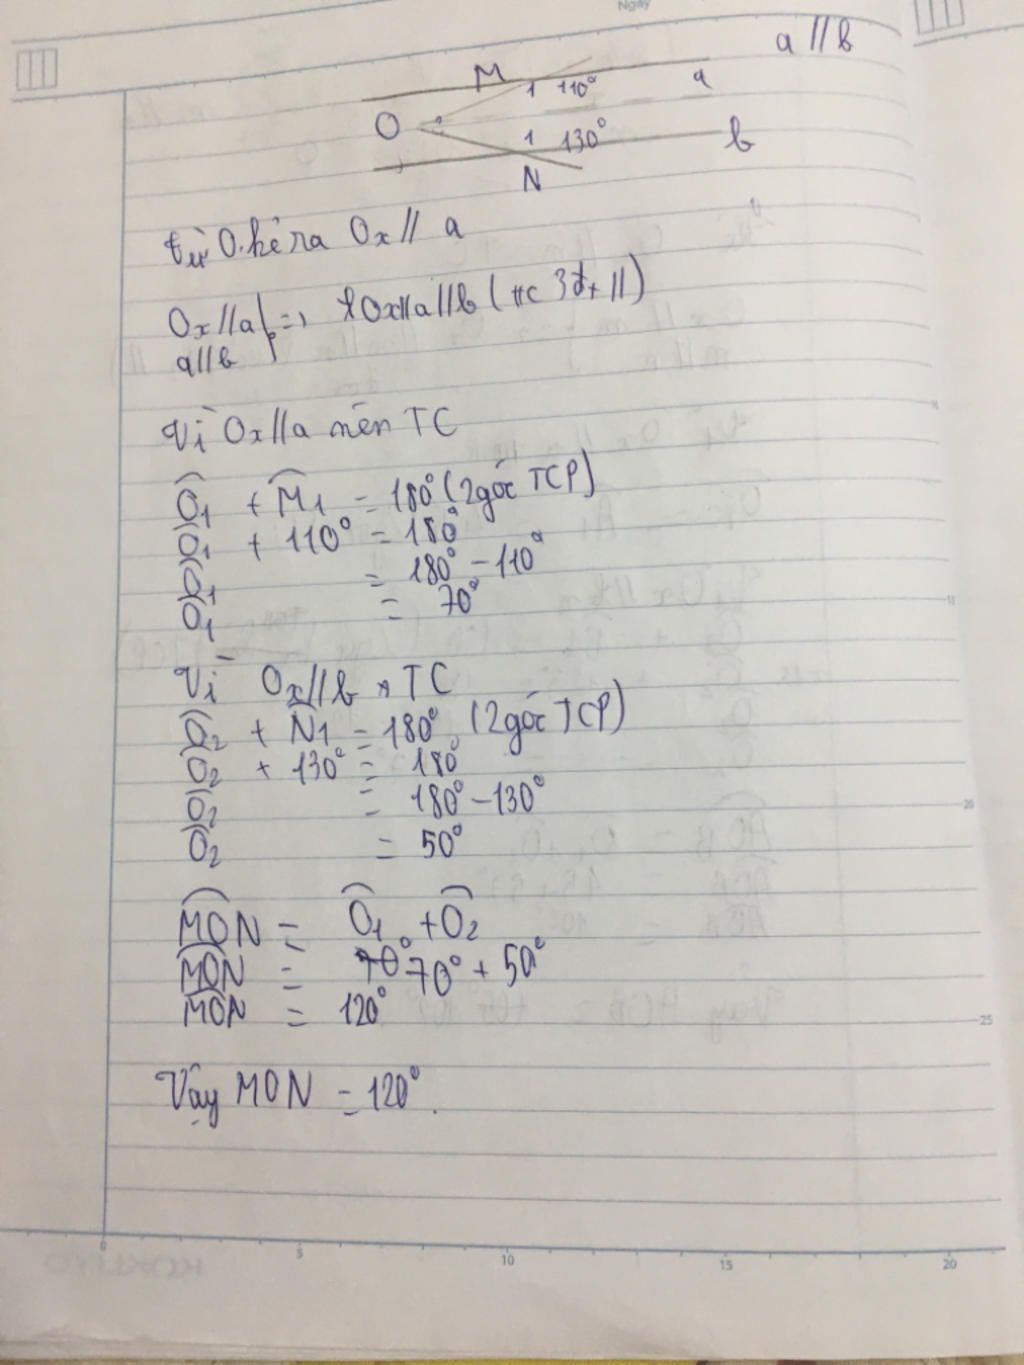 Ngày
a // b
M 1 110° a
O
1 130° b
N
từ O kẻ ra Ox // a
Ox // a } => Ox//a//b (tc 3đt //)
a // b
Vì Ox // a nên TC
O1 + M1 = 180° (2góc TCP)
O1 + 110° = 180°
O1 = 180° - 110°
O1 = 70°
Vì Ox // b n TC
O2 + N1 = 180° (2góc TCP)
O2 + 130° = 180°
O2 = 180° - 130°
O2 = 50°
MON = O1 + O2
MON = 70° 70° + 50°
MON = 120°
Vậy MON = 120°.
0 5 10 15 20
20
25